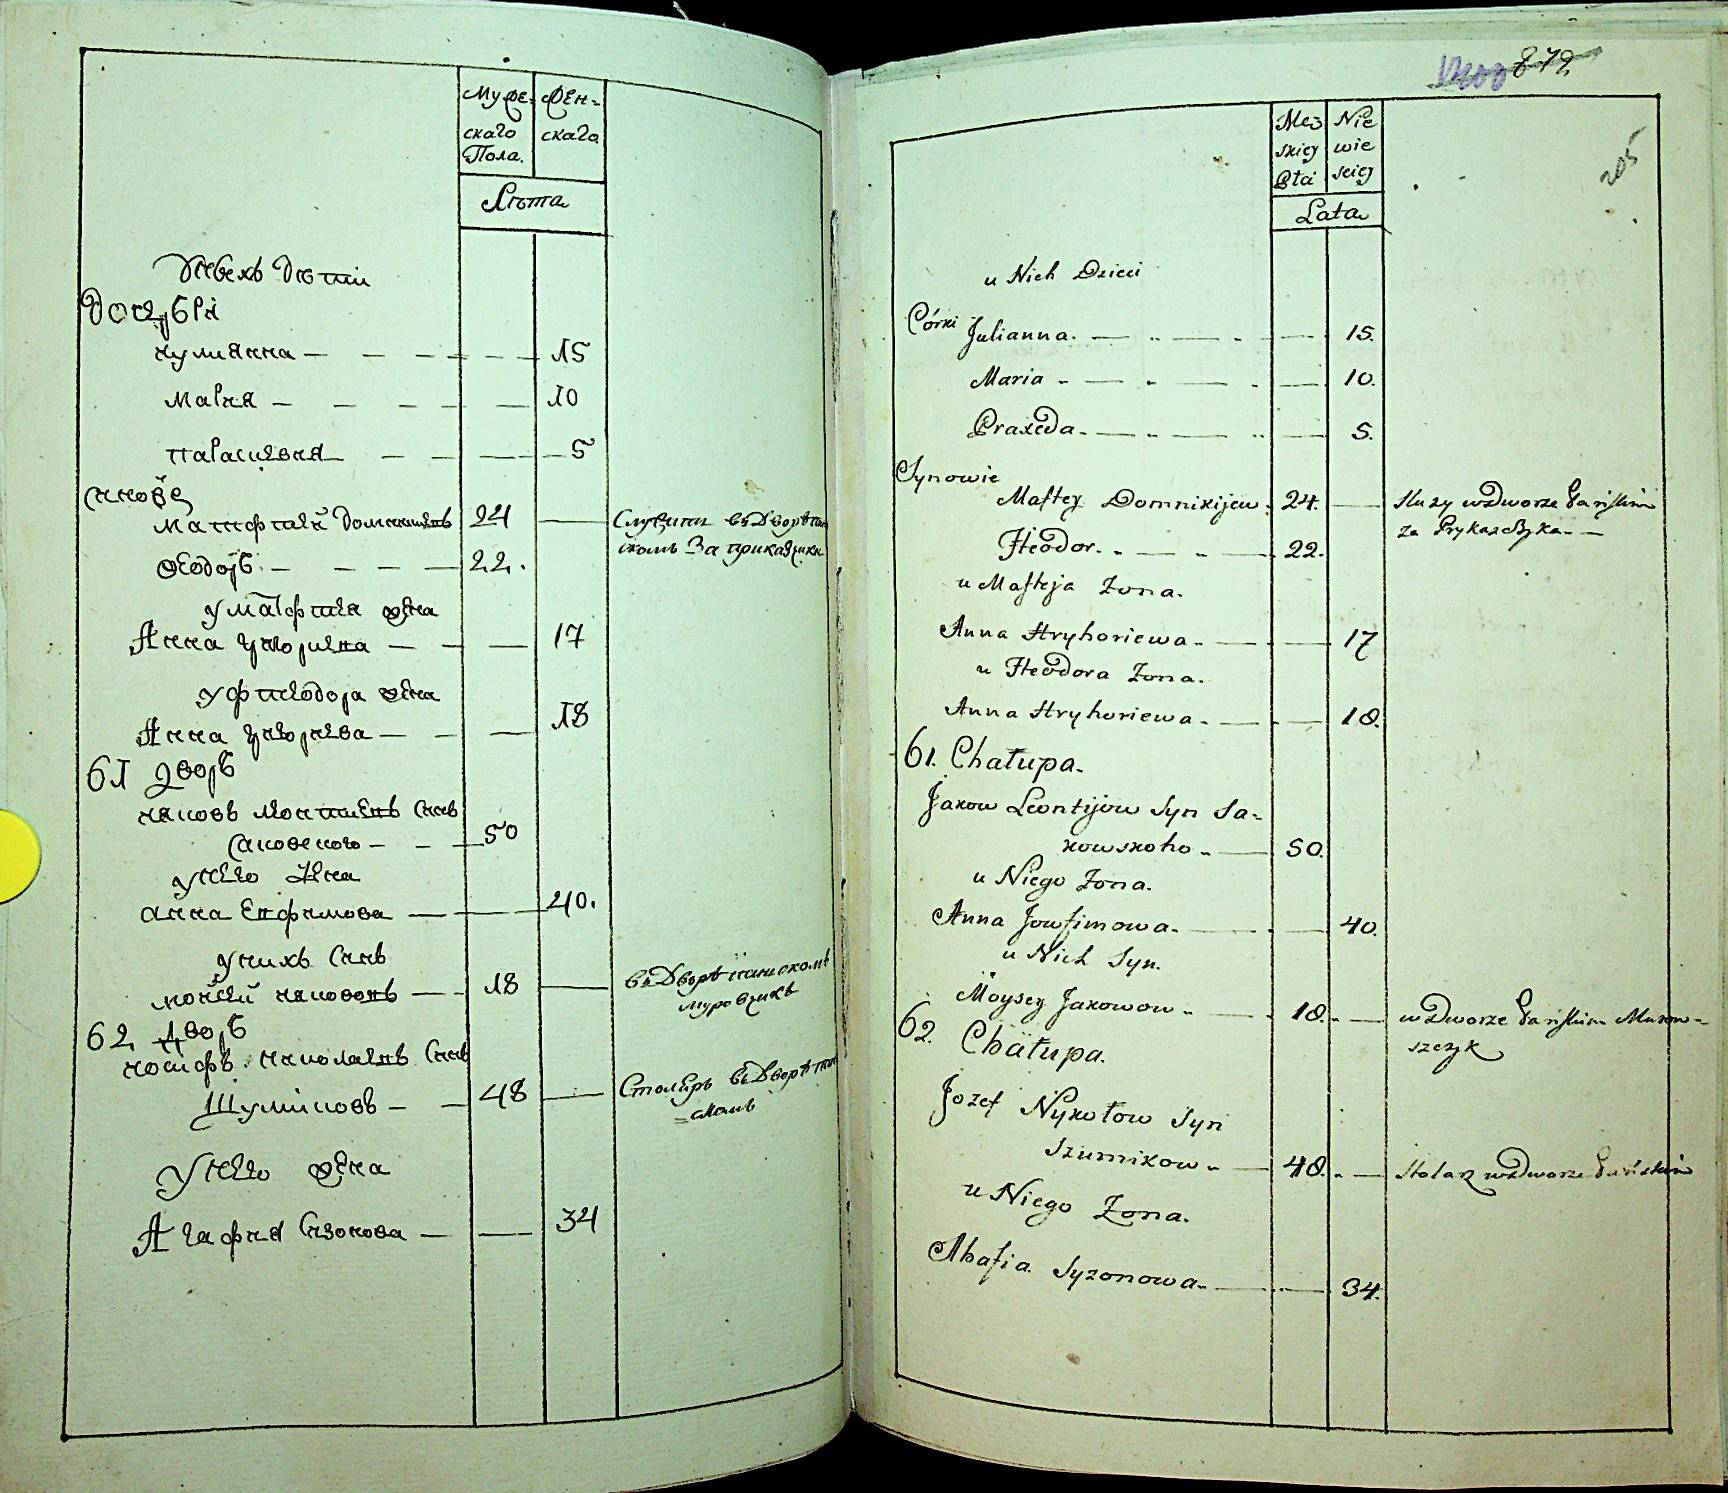 Мужескаго Пола.
Женскаго.
Лѣта
дочери
иулианна — — — — — 15
Мариа — — — — — 10
параскевиа — — — — 5
Матфтей 24 — Служитъ въ Дворѣ
скомъ За приказчика
Феодоръ — — — — 22.
у Матфтея жена
Анна — — — 17
у фтеодора жена
Анна — — — 18
61 дворъ
иаковъ Леонтиевъ синъ
Саковского — — — 50
у него жена
анна Евфимова — — 40.
у нихъ синъ
мойсей иакововъ — 18 — въ Дворѣ панскомъ
муровщикъ
62 дворъ
иосифъ николаевъ синъ
Шумиковъ — — 48 — Столяръ въ Дворѣ
скомъ
у него жена
Агафиа Сизонова — — 34
872
205
Męż
skiey
Płci
Nie
wie
sciey
Lata
u Nich Dzieci
Córki Julianna. — 15.
Maria — 10.
Praxeda. — 5.
Synowie
Maftey Domnikijew. 24. — Służy w Dworze Pańskim
za Prykaszczyka. —
Fteodor. — 22.
u Mafteja Żona.
Anna Hryhoriewa — 17
u Fteodora Żona.
Anna Hryhoriewa — 18.
61. Chałupa.
Jakow Leontijow Syn Sa-
kowskoho — 50.
u Niego Żona.
Anna Jowfimowa. — 40.
u Nich Syn.
Moysey Jakowow — 18. — w Dworze Pańskim Murow-
szczyk
62. Chałupa.
Jozef Nykołow Syn
Szumikow — 48. — Stolarz w Dworze Pańskim
u Niego Żona.
Ahafia Syzonowa — 34.